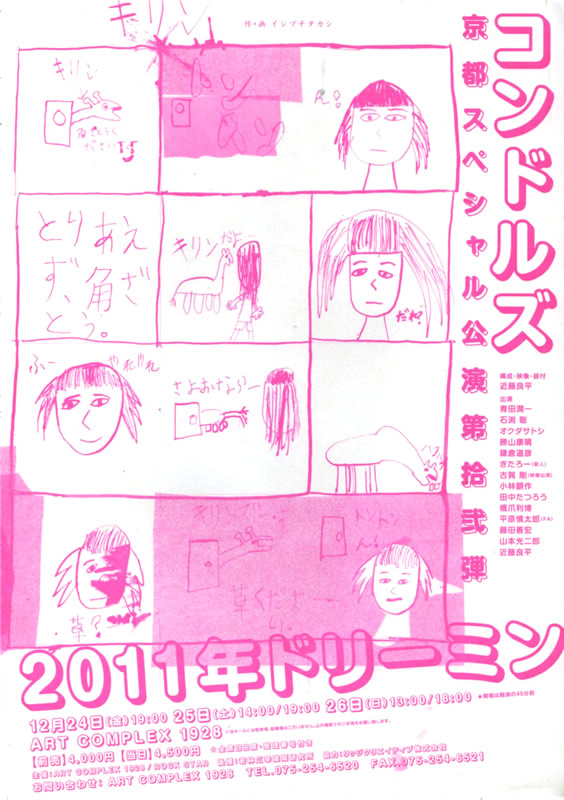 キリン
作・画 イシブチタカシ
コンドルズ
京都スペシャル公演第拾弐弾
キリン
ドン
ん?
とりあえ
ず、角ざ
とう。
キリンだよ
だれ?
ふー
やれやれ
さよおなら〜
構成・映像・振付
近藤良平
出演
青田潤一
石渕 聡
オクダサトシ
勝山康晴
鎌倉道彦
ぎたろー(新人)
古賀 剛(映像出演)
小林顕作
田中たつろう
橋爪利博
平原慎太郎
藤田善宏
山本光二郎
近藤良平
キリンでーす
トントン
ん?
草くださ
草?
2011年ドリーミン
12月24日(金)19:00 25日(土)14:00/19:00 26日(日)13:00/18:00 ※開場は開演の45分前
ART COMPLEX 1928
【前売】4,000円【当日】4,500円 ※全席自由・整理番号付き
主催:ART COMPLEX 1928/ROCK STAR
お問い合わせ: ART COMPLEX 1928 TEL.075-254-6520 FAX.075-254-6521